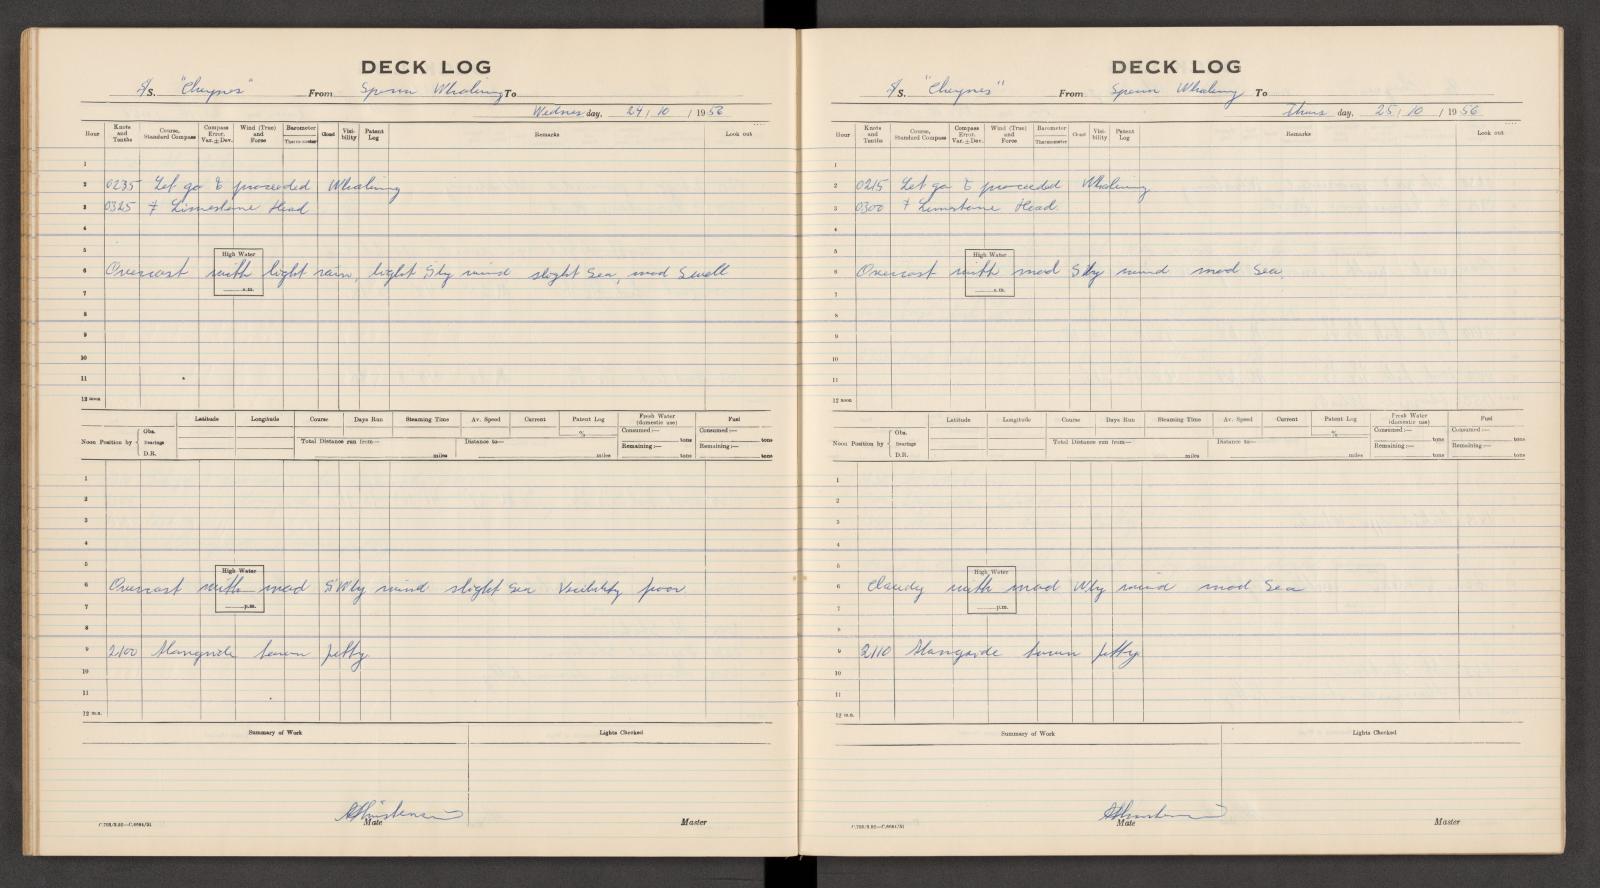 DECK LOG
S/S. "Cheynes" From Sperm Whaling To
Wednesday, 24/10/1956
Hour Knots and Tenths Course, Standard Compass Compass Error. Var. ± Dev. Wind (True) and Force Barometer Thermometer Cloud Visibility Patent Log Remarks Look out
1
2 0235 Let go & proceeded Whaling
3 0325 Limestone Head
4
5
High Water
6 Overcast with light rain, light S'ly wind slight sea, mod swell
7 a.m.
8
9
10
11
12 noon
Latitude Longitude Course Days Run Steaming Time Av. Speed Current Patent Log % Fresh Water (domestic use) Fuel
Noon Position by Obs. Bearings D.R. Total Distance run from— miles Distance to— miles Consumed :— tons Remaining :— tons Consumed :— tons Remaining :— tons
1
2
3
4
5
High Water
6 Overcast with mod SW'ly wind slight sea Visibility poor
7 p.m.
8
9 2100 Alongside town jetty
10
11
12 m.n.
Summary of Work Lights Checked
A Christensen
Mate Master
C.703/8.52—C.6684/51
DECK LOG
S/S. "Cheynes" From Sperm Whaling To
Thursday, 25/10/1956
Hour Knots and Tenths Course, Standard Compass Compass Error. Var. ± Dev. Wind (True) and Force Barometer Thermometer Cloud Visibility Patent Log Remarks Look out
1
2 0215 Let go & proceeded Whaling
3 0300 Limestone Head
4
5
High Water
6 Overcast with mod S'ly wind mod sea
7 a.m.
8
9
10
11
12 noon
Latitude Longitude Course Days Run Steaming Time Av. Speed Current Patent Log % Fresh Water (domestic use) Fuel
Noon Position by Obs. Bearings D.R. Total Distance run from— miles Distance to— miles Consumed :— tons Remaining :— tons Consumed :— tons Remaining :— tons
1
2
3
4
5
High Water
6 Cloudy with mod W'ly wind mod sea
7 p.m.
8
9 2110 Alongside town jetty
10
11
12 m.n.
Summary of Work Lights Checked
A Christensen
Mate Master